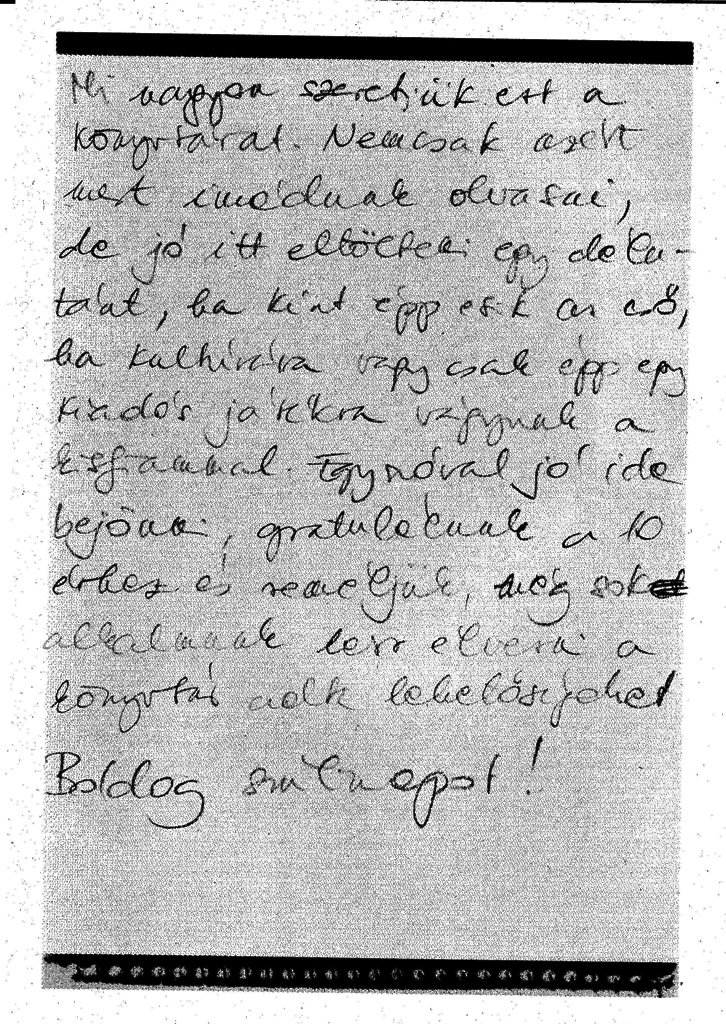 Mi nagyon szeretjük ezt a
könyvtárat. Nemcsak azért
mert imádunk olvasni,
de jó itt eltölteni egy délu-
tánt, ha kint épp esik az eső,
ha kultúrára vagy csak épp egy
kiadós játékra vágyunk a
kisfiammal. Egyszóval jó ide
bejönni, gratulálunk a 10
évhez és reméljük, még sok
alkalmunk lesz élvezni a
könyvtár adta lehetőségeket
Boldog szülinapot!